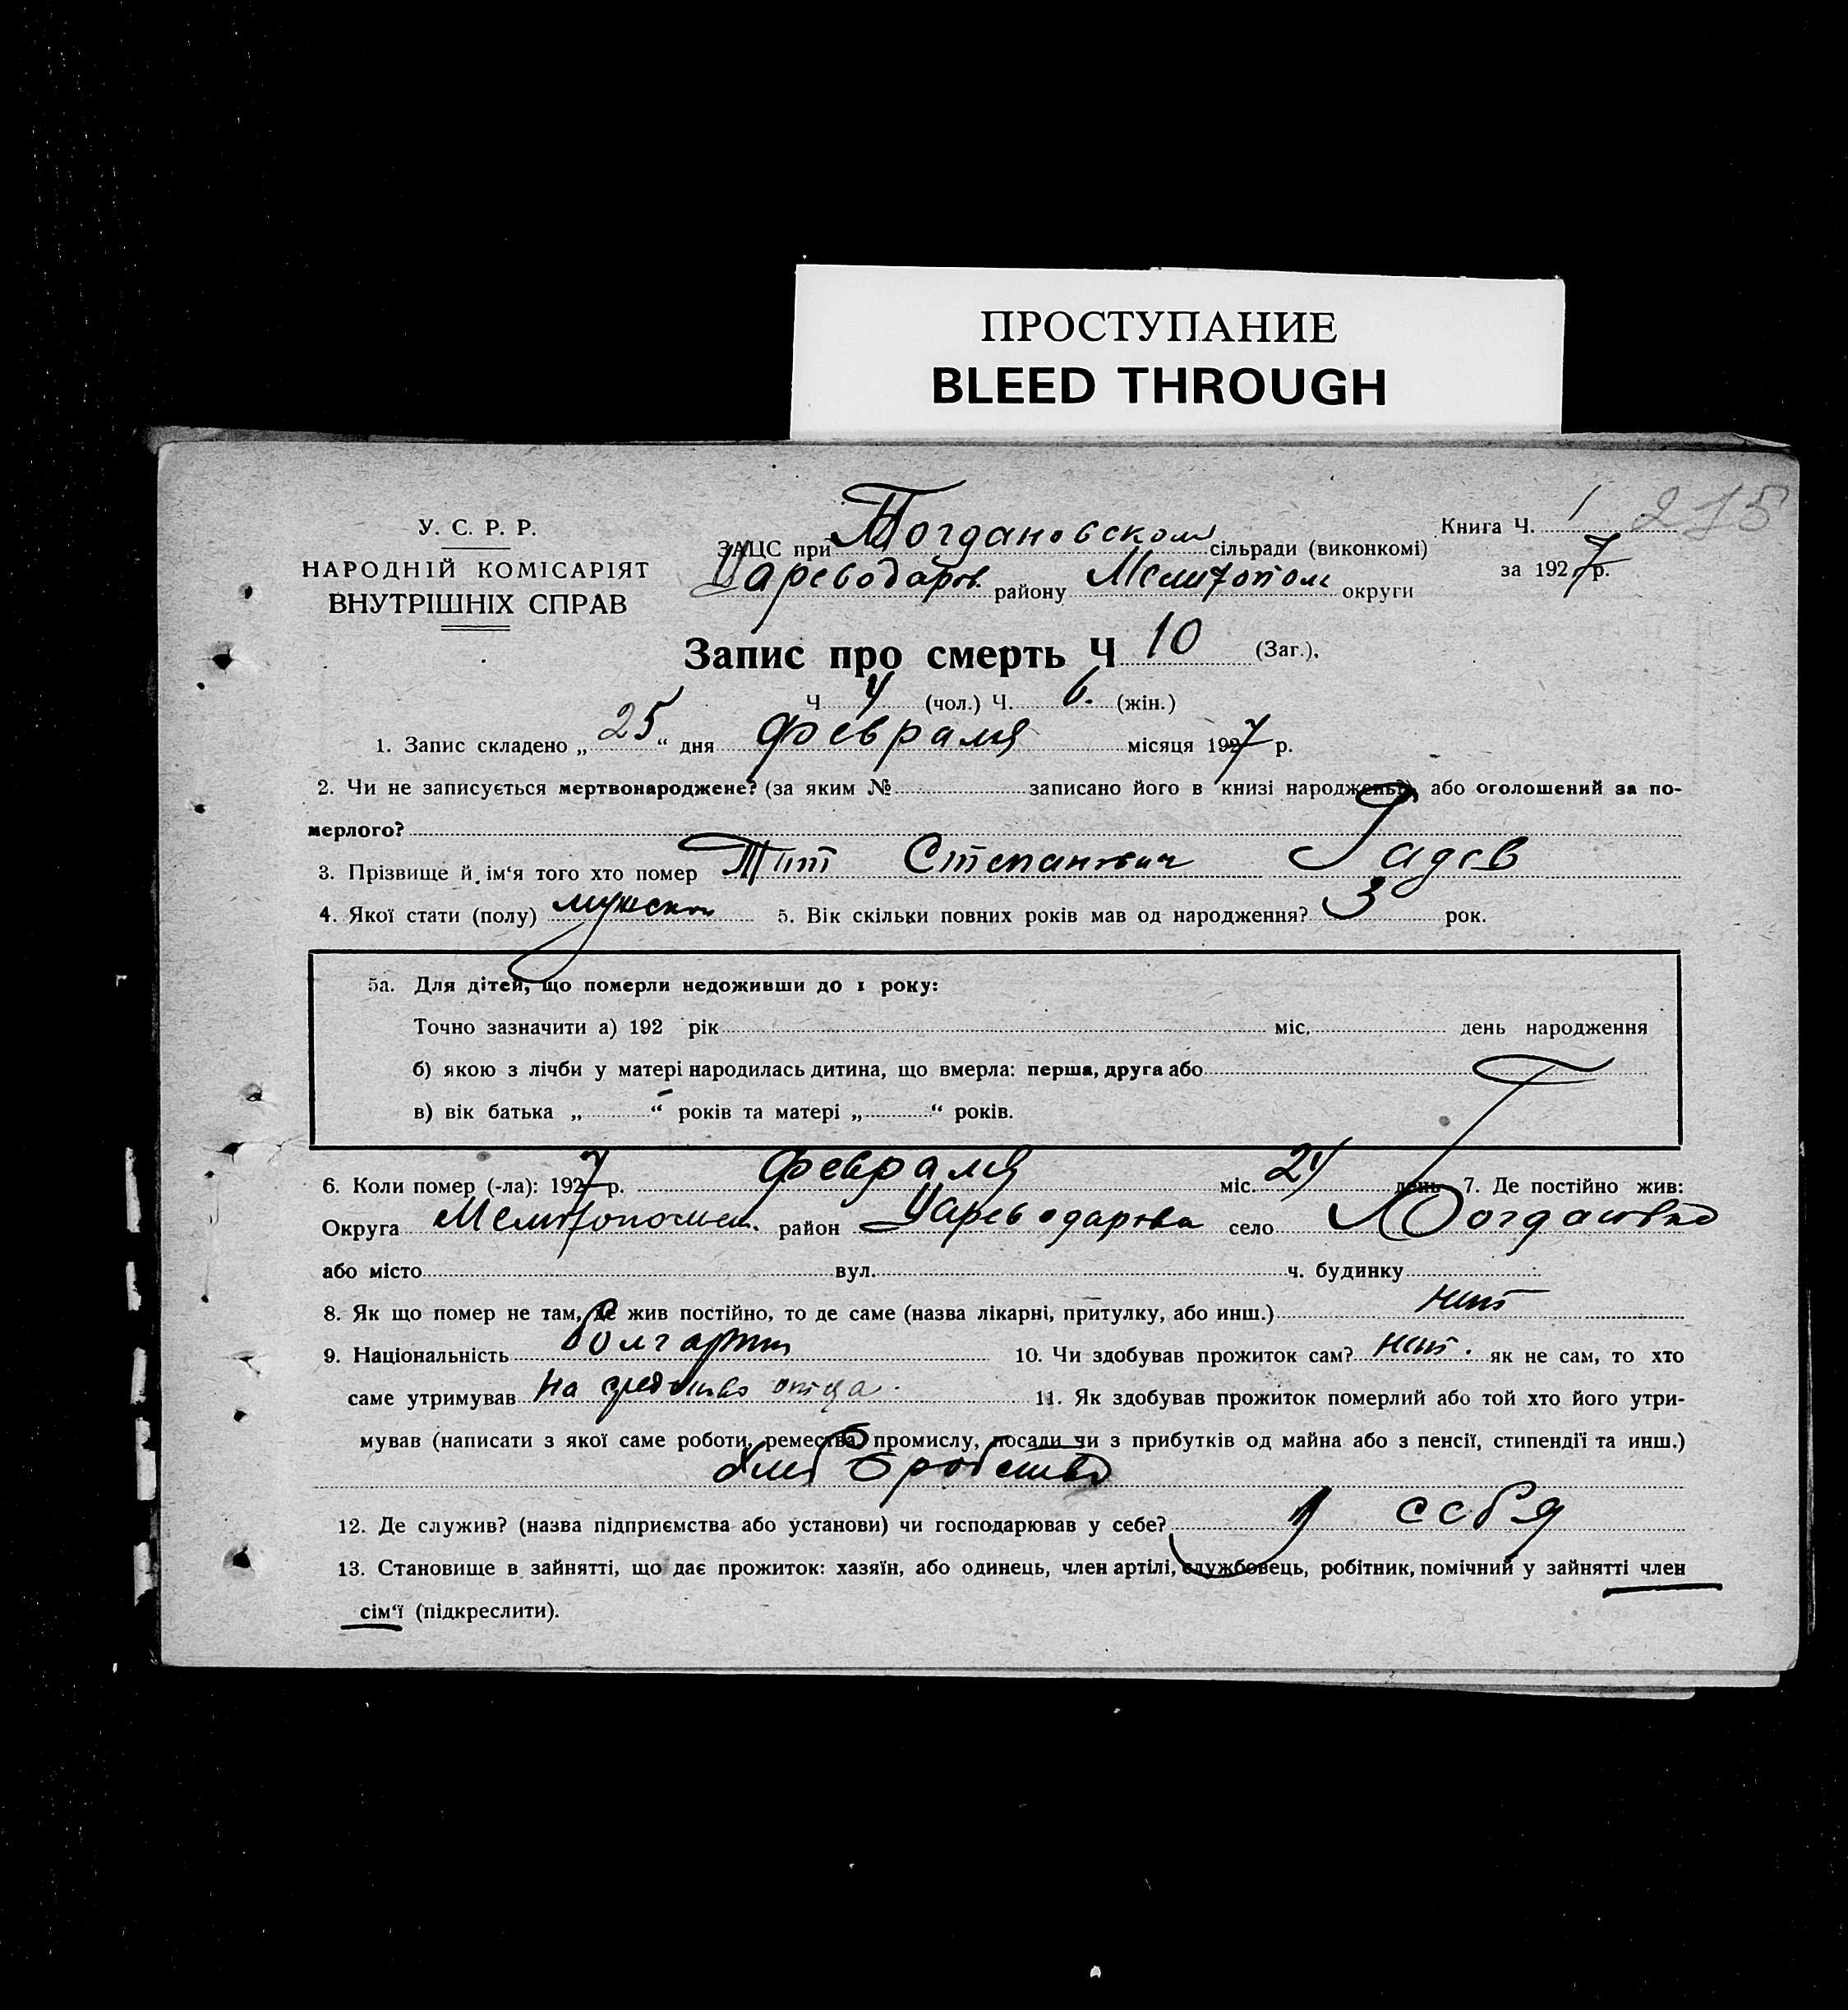 ПРОСТУПАНИЕ
BLEED THROUGH
215
У. С. Р. Р.
НАРОДНІЙ КОМІСАРІЯТ
ВНУТРІШНІХ СПРАВ
ЗАЦС при Богдановском сільради (виконкомі)
Цареводаров. району Мелитопол округи
Книга Ч. 1
за 1927 р.
Запис про смерть Ч 10 (Заг.).
Ч 4 (чол.) Ч. 6. (жін.)
1. Запис складено „ 25 “ дня февраля місяця 1927 р.
2. Чи не записується мертвонароджене? (за яким № записано його в книзі народжень?) або оголошений за по-
мерлого?
3. Прізвище й ім‘я того хто помер Тит Степанович Гадев
4. Якої стати (полу) мужской 5. Вік скільки повних років мав од народження? 3 рок.
5а. Для дітей, що померли недоживши до 1 року:
Точно зазначити а) 192 рік міс. день народження
б) якою з лічби у матері народилась дитина, що вмерла: перша, друга або
в) вік батька „ “ років та матері „ “ років.
6. Коли помер (-ла): 1927 р. февраля міс. 24 день 7. Де постійно жив:
Округа район Цареводарова село Богдановка
або місто вул. ч. будинку
8. Як що помер не там, де жив постійно, то де саме (назва лікарні, притулку, або инш.) нет
9. Національність болгарин 10. Чи здобував прожиток сам? нет. як не сам, то хто
саме утримував На средства отца. 11. Як здобував прожиток померлий або той хто його утри-
мував (написати з якої саме роботи, ремества, промислу, посади чи з прибутків од майна або з пенсії, стипендії та инш.)
хлебробство
12. Де служив? (назва підприємства або установи) чи господарював у себе? У себя
13. Становище в зайнятті, що дає прожиток: хазяїн, або одинець, член артілі, службовець, робітник, помічний у зайнятті член
сім‘ї (підкреслити).